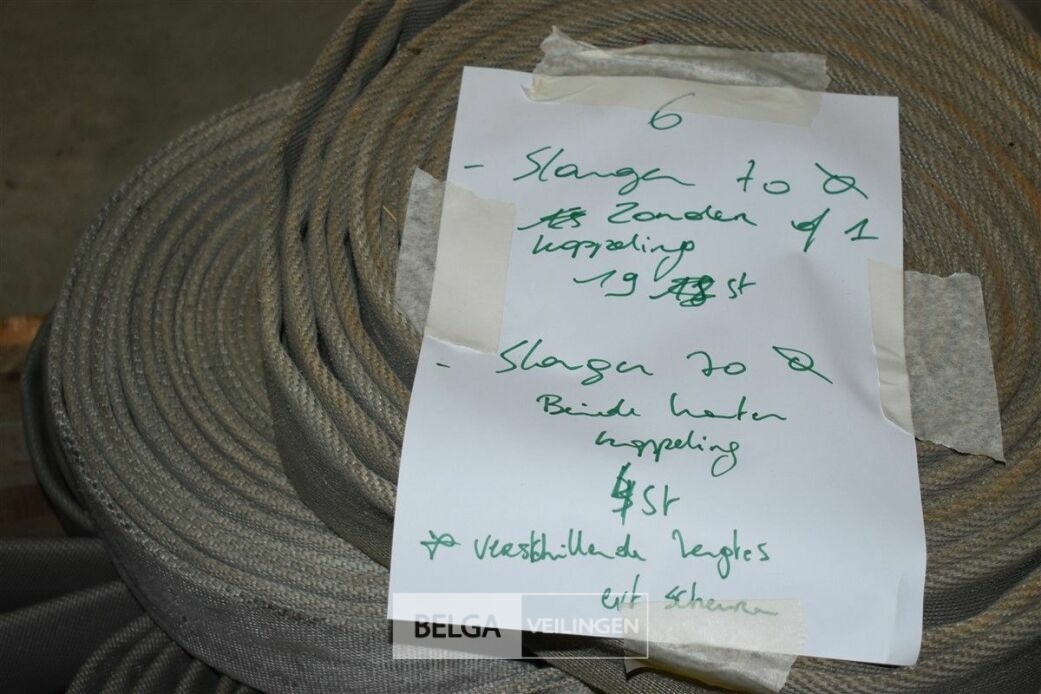 6
- Slangen 70 Ø
Zonder of 1
koppeling
19 st
- Slangen 70 Ø
Beide kanten
koppeling
st
verschillende lengtes
BELGA VEILINGEN